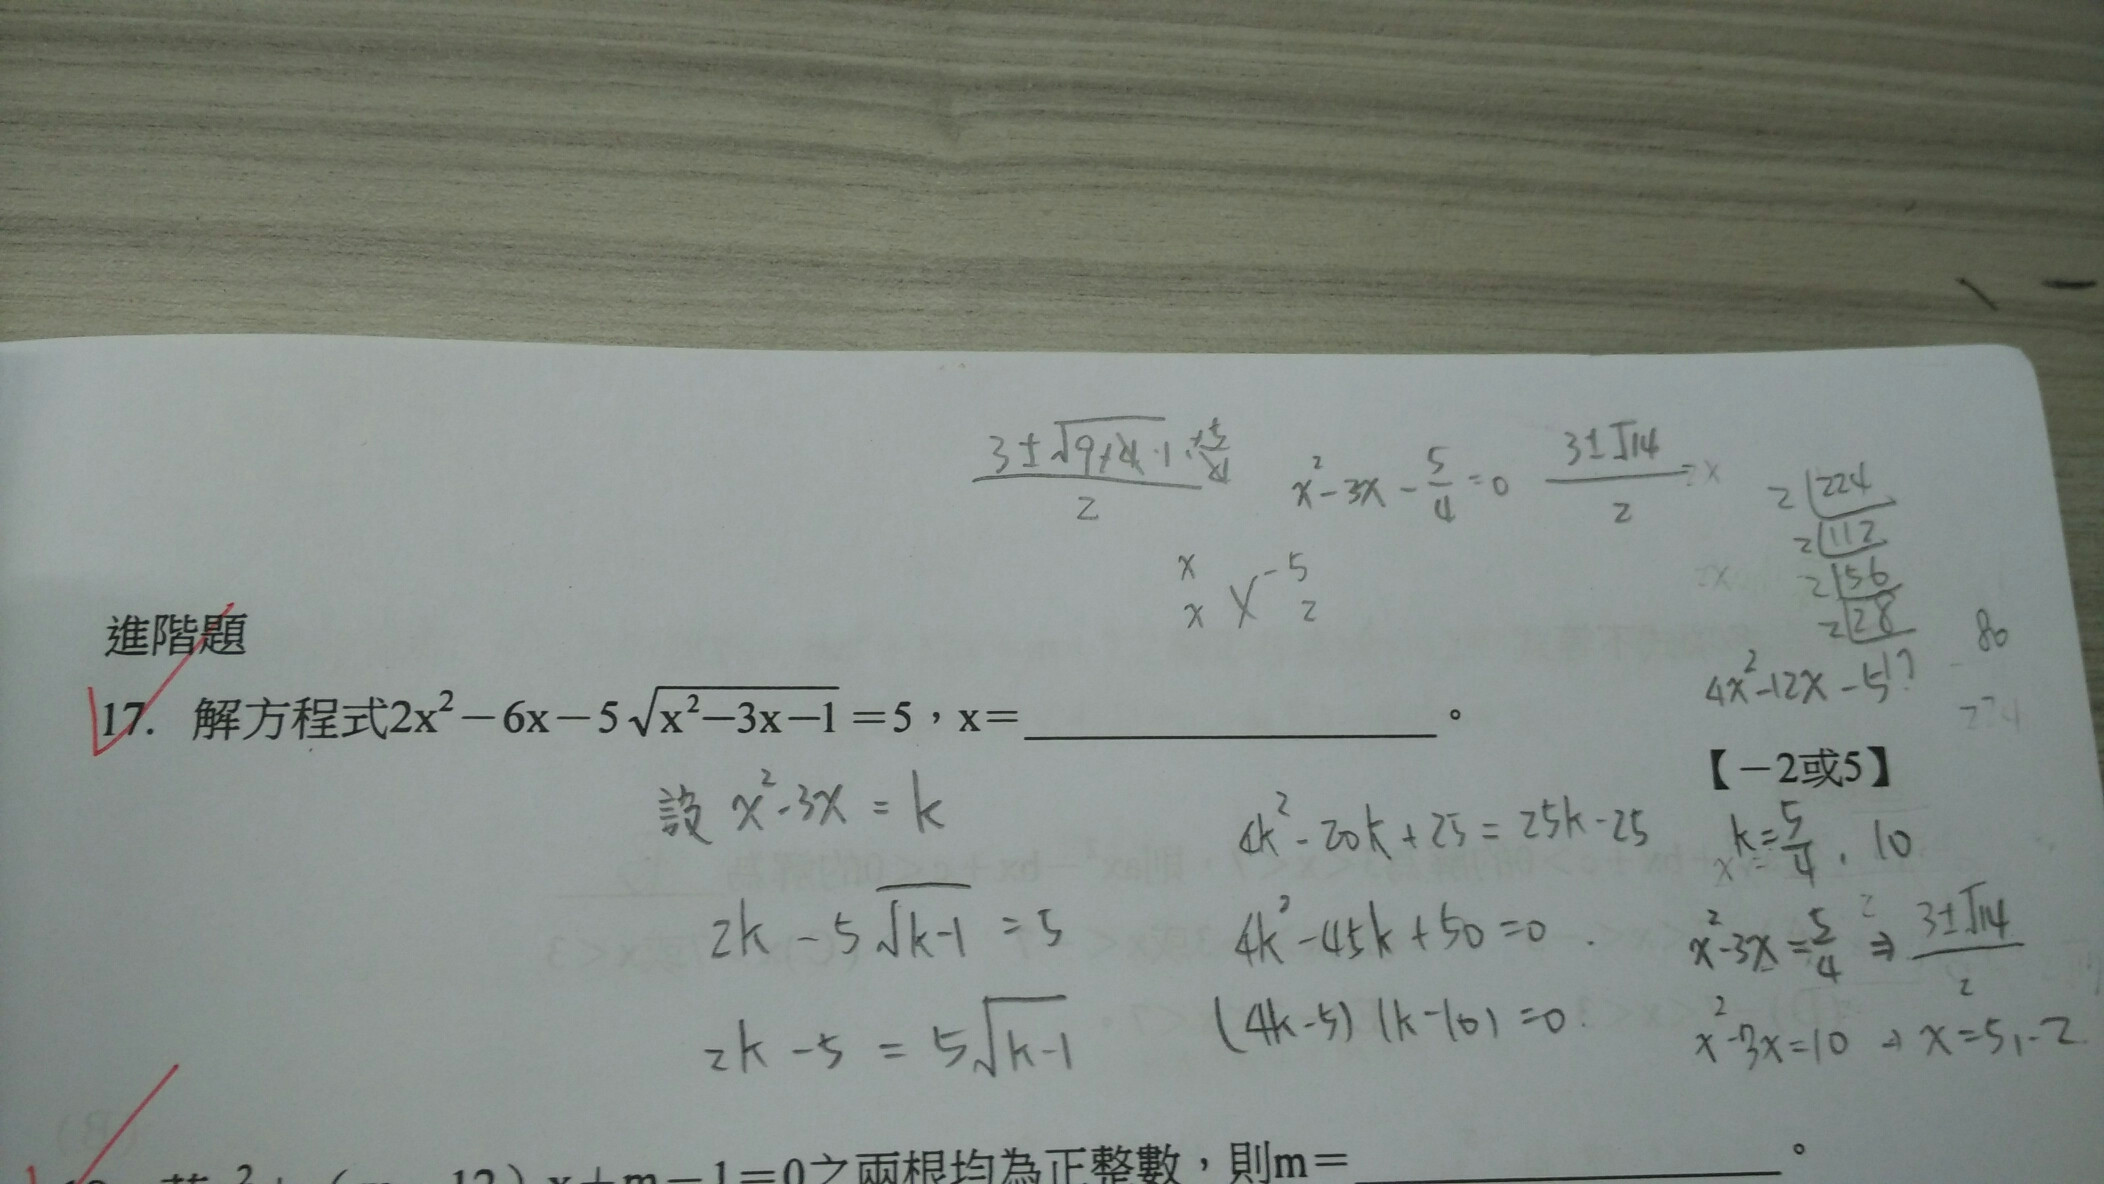 3±√14 / 2 = x
x² - 3x - 5/4 = 0
x -5
x 2
2 224
2 112
2 56
2 28
80
4x² - 12x - 5
進階題
17. 解方程式2x²－6x－5√(x²－3x－1)＝5，x＝＿＿＿＿＿＿。
【－2或5】
設 x² - 3x = k
2k - 5√(k-1) = 5
2k - 5 = 5√(k-1)
4k² - 20k + 25 = 25k - 25
4k² - 45k + 50 = 0
(4k-5)(k-10) = 0
k = 5/4, 10
x² - 3x = 5/4 ⇒ 3±√14 / 2
x² - 3x = 10 → x = 5, -2
x＋m－1＝0之兩根均為正整數，則m＝＿＿＿＿＿＿。